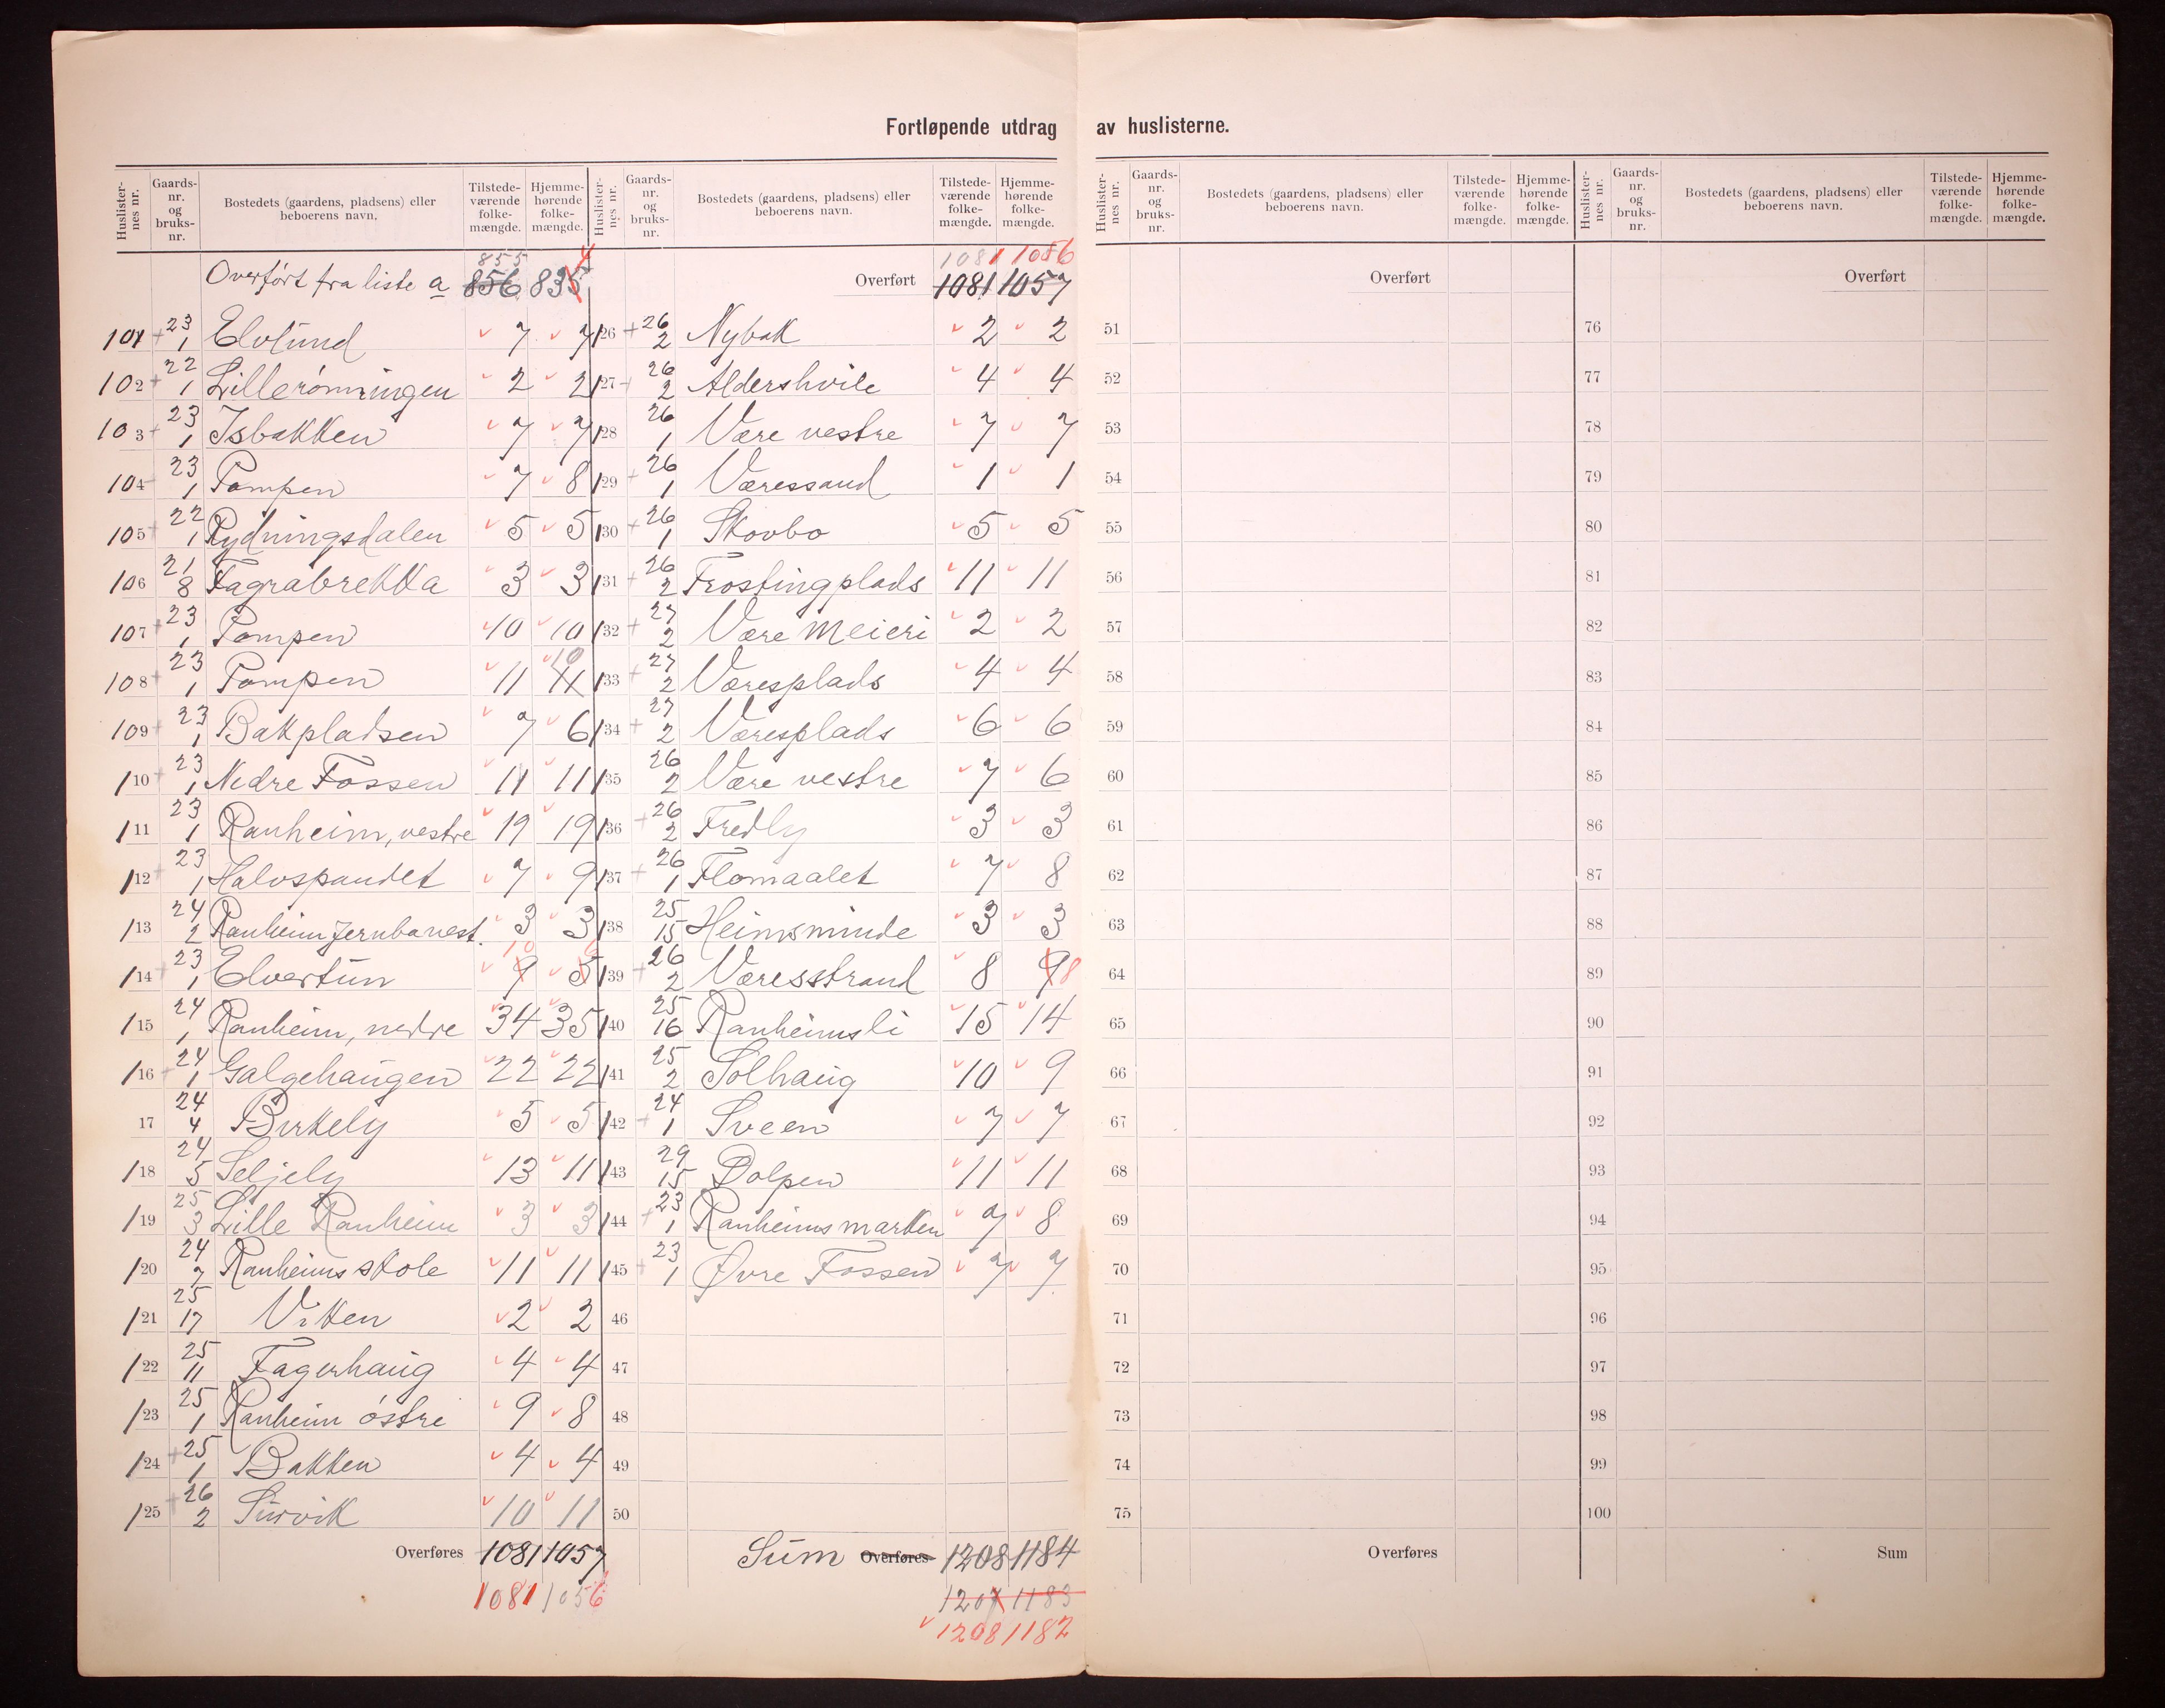 Fortløpende utdrag av huslisterne.
Huslisternes nr. Gaards-nr. og bruks-nr. Bostedets (gaardens, pladsens) eller beboerens navn. Tilstedeværende folkemængde. Hjemmehørende folkemængde.
Overført fra liste a 855 856 835 4
101 + 23 1 Elvlund 7 7
102 + 22 1 Lillerømningen 2 2
103 + 23 1 Isbakken 7 7
104 23 1 Pampen 7 8
105 + 22 1 Rydningsdalen 5 5
106 21 8 Fagrabrekka 3 3
107 + 23 1 Pampen 10 10
108 + 23 1 Pampen 11 11 10
109 + 23 1 Bakpladsen 7 6
110 + 23 1 Nedre Fossen 11 11
111 23 1 Ranheim, vestre 19 19
112 + 23 1 Halvspandet 7 9
113 24 2 Ranheim Jernbanest. 3 3
114 + 23 1 Elvertun 9 10 5 6
115 24 1 Ranheim, nedre 34 35
116 + 24 1 Galgehaugen 22 22
17 24 4 Birkely 5 5
118 24 5 Seljely 13 11
119 25 3 Lille Ranheim 3 3
120 24 7 Ranheims skole 11 11
121 25 17 Viken 2 2
122 25 11 Fagerhaug 4 4
123 25 1 Ranheim østre 9 8
124 + 25 1 Bakken 4 4
125 + 26 2 Survik 10 11
Overføres 1081 1057
1081 1056
Huslisternes nr. Gaards-nr. og bruks-nr. Bostedets (gaardens, pladsens) eller beboerens navn. Tilstedeværende folkemængde. Hjemmehørende folkemængde.
1081 1056
Overført 1081 1057
126 + 26 2 Nybak 2 2
127 + 26 2 Aldershvile 4 4
128 26 1 Være vestre 7 7
129 + 26 1 Væressand 1 1
130 + 26 1 Skovbo 5 5
131 + 26 2 Frostingplads 11 11
132 + 27 2 Være Meieri 2 2
133 + 27 2 Væresplads 4 4
134 + 27 2 Væresplads 6 6
135 26 2 Være vestre 7 6
136 + 26 2 Fredly 3 3
137 + 26 1 Flomaalet 7 8
138 25 15 Heimsminde 3 3
139 + 26 2 Væresstrand 8 9 8
140 25 16 Ranheimsli 15 14
141 25 2 Solhaug 10 9
142 + 24 1 Sveen 7 7
143 29 15 Dolpen 11 11
144 + 23 1 Ranheimsmarken 7 8
145 + 23 1 Øvre Fossen 7 7
46
47
48
49
50
Sum Overføres 1208 1184
1207 1183
1208 1182
Huslisternes nr. Gaards-nr. og bruks-nr. Bostedets (gaardens, pladsens) eller beboerens navn. Tilstedeværende folkemængde. Hjemmehørende folkemængde.
Overført
51
52
53
54
55
56
57
58
59
60
61
62
63
64
65
66
67
68
69
70
71
72
73
74
75
Overføres
Huslisternes nr. Gaards-nr. og bruks-nr. Bostedets (gaardens, pladsens) eller beboerens navn. Tilstedeværende folkemængde. Hjemmehørende folkemængde.
Overført
76
77
78
79
80
81
82
83
84
85
86
87
88
89
90
91
92
93
94
95
96
97
98
99
100
Sum